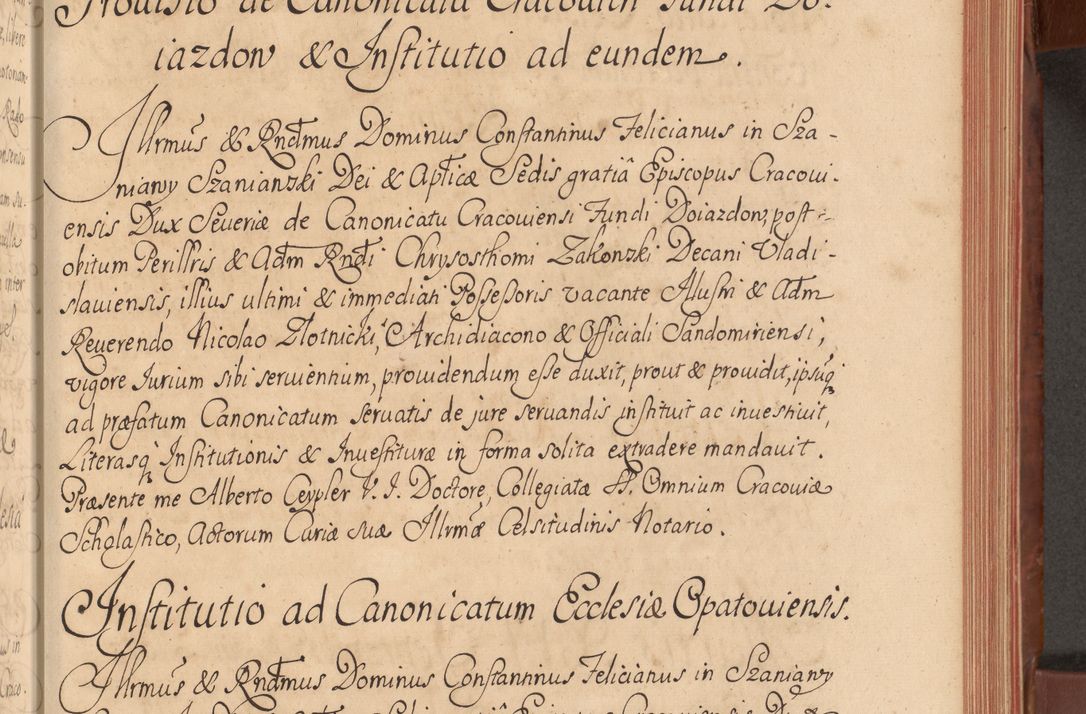 Provisio de Canonicatu Cracovien Fundi Do-
iazdow & Institutio ad eundem.
Illrmus & Rndmus Dominus Constantinus Felicianus in Sza-
niawy Szaniawski Dei & Aplicæ Sedis gratiâ Episcopus Cracovi-
ensis Dux Severiæ de Canonicatu Cracoviensi Fundi Doiazdow, post
obitum Perillris & Adm Rndi Chrysosthomi Zakowski Decani Vladi-
slaviensis, illius ultimi & immediati Possessoris vacante Illustri & Adm
Reverendo Nicolao Złotnicki, Archidiacono & Officiali Sandomiriensi,
vigore Jurium sibi servientium, providendum esse duxit, prout & providit, ipsuq
ad præfatum Canonicatum servatis de jure servandis instituit ac investivit,
Literasq Institutionis & Investituræ in forma solita extradere mandavit.
Præsente me Alberto Ceypler V. J. Doctore, Collegiatæ SS. Omnium Cracoviæ
Scholastico, Actorum Curiæ suæ Illrmæ Celsitudinis Notario.
Institutio ad Canonicatum Ecclesiæ Opatoviensis.
Illrmus & Rndmus Dominus Constantinus Felicianus in Szaniawy